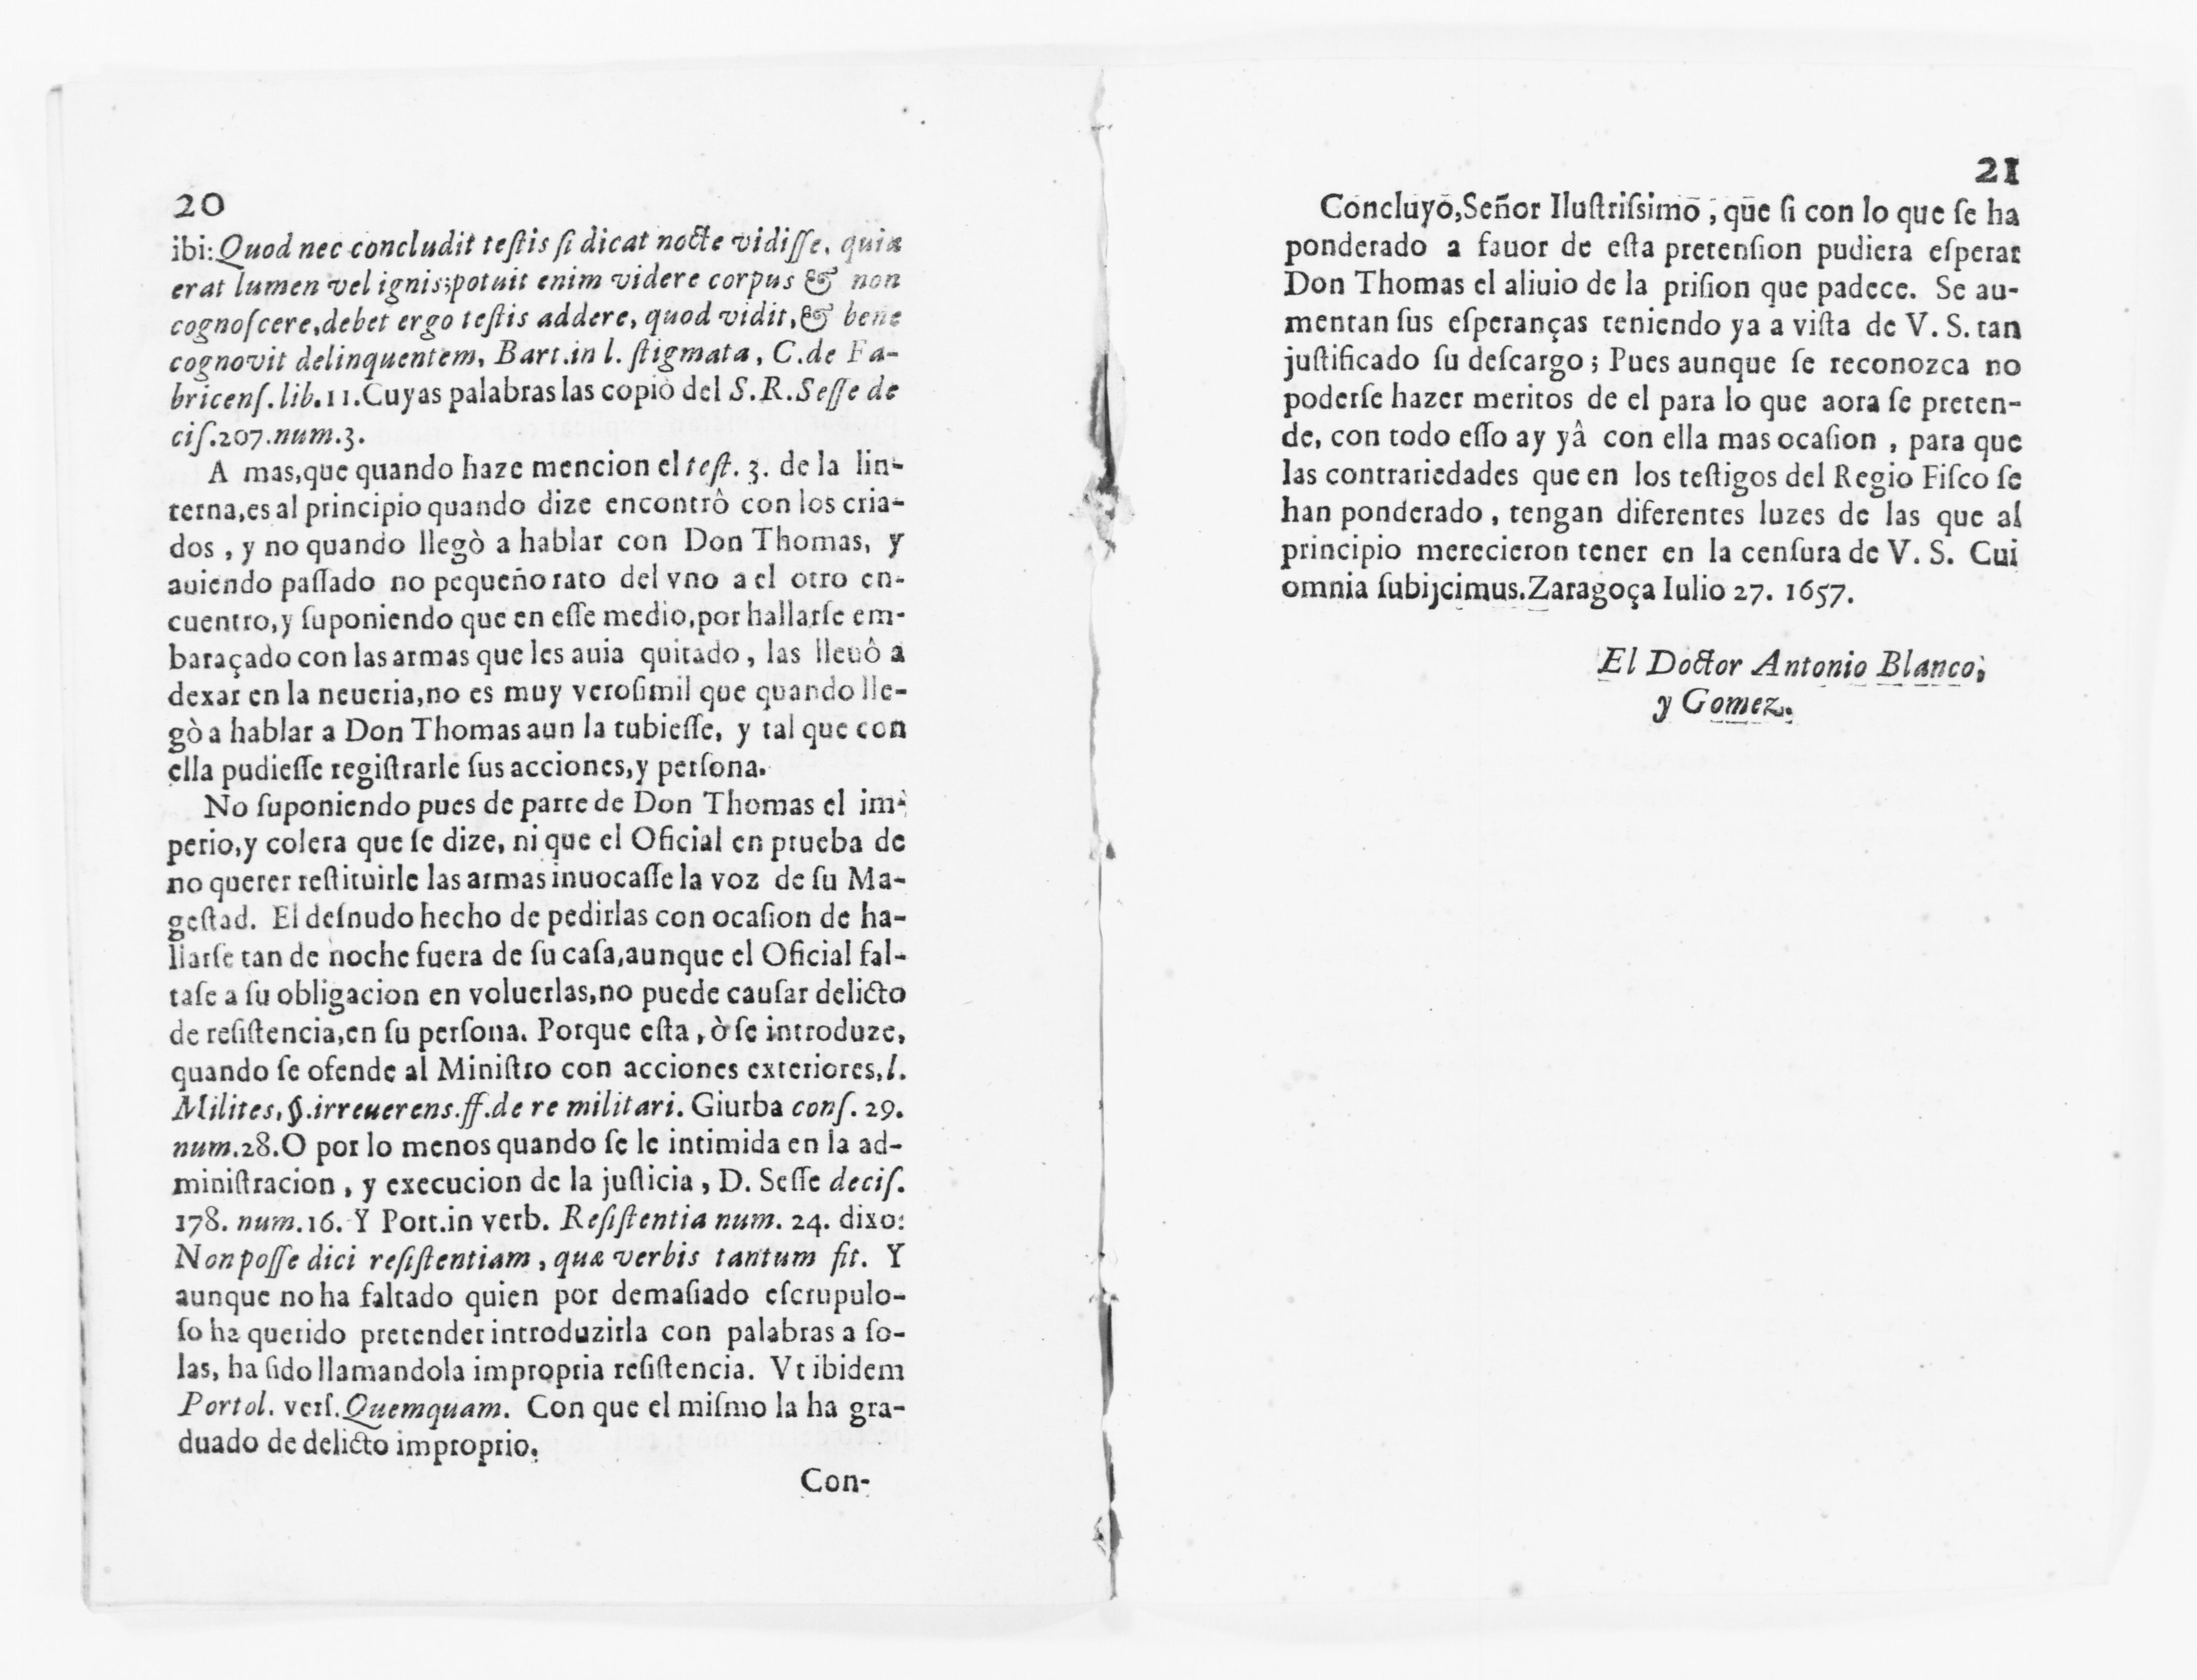 20
ibi: Quod nec concludit teſtis ſi dicat nocte vidiſſe, quia
erat lumen vel ignis; potuit enim videre corpus & non
cognoſcere, debet ergo teſtis addere, quod vidit, & bene
cognovit delinquentem, Bart. in l. ſtigmata, C. de Fa-
bricenſ. lib. 11. Cuyas palabras las copiò del S. R. Seſſe de
ciſ. 207. num. 3.
A mas, que quando haze mencion el teſt. 3. de la lin-
terna, es al principio quando dize encontrô con los cria-
dos, y no quando llegò a hablar con Don Thomas, y
auiendo paſſado no pequeño rato del vno a el otro en-
cuentro, y ſuponiendo que en eſſe medio, por hallarſe em-
baraçado con las armas que les auia quitado, las lleuô a
dexar en la neueria, no es muy veroſimil que quando lle-
gò a hablar a Don Thomas aun la tubieſſe, y tal que con
ella pudieſſe regiſtrarle ſus acciones, y perſona.
No ſuponiendo pues de parte de Don Thomas el im-
perio, y colera que ſe dize, ni que el Oficial en prueba de
no querer reſtituirle las armas inuocaſſe la voz de ſu Ma-
geſtad. El deſnudo hecho de pedirlas con ocaſion de ha-
llarſe tan de noche fuera de ſu caſa, aunque el Oficial fal-
taſe a ſu obligacion en voluerlas, no puede cauſar delicto
de reſiſtencia, en ſu perſona. Porque eſta, ò ſe introduze,
quando ſe ofende al Miniſtro con acciones exteriores, l.
Milites, §. irreuerens. ff. de re militari. Giurba conſ. 29.
num. 28. O por lo menos quando ſe le intimida en la ad-
miniſtracion, y execucion de la juſticia, D. Seſſe deciſ.
178. num. 16. Y Port. in verb. Reſiſtentia num. 24. dixo:
Non poſſe dici reſiſtentiam, quæ verbis tantum fit. Y
aunque no ha faltado quien por demaſiado eſcrupulo-
ſo ha querido pretender introduzirla con palabras a ſo-
las, ha ſido llamandola impropria reſiſtencia. Vt ibidem
Portol. verſ. Quemquam. Con que el miſmo la ha gra-
duado de delicto improprio.
Con-
21
Concluyo, Señor Iluſtriſsimo, que ſi con lo que ſe ha
ponderado a fauor de eſta pretenſion pudiera eſperar
Don Thomas el aliuio de la priſion que padece. Se au-
mentan ſus eſperanças teniendo ya a viſta de V. S. tan
juſtificado ſu deſcargo; Pues aunque ſe reconozca no
poderſe hazer meritos de el para lo que aora ſe preten-
de, con todo eſſo ay yâ con ella mas ocaſion, para que
las contrariedades que en los teſtigos del Regio Fiſco ſe
han ponderado, tengan diferentes luzes de las que al
principio merecieron tener en la cenſura de V. S. Cui
omnia ſubijcimus. Zaragoça Iulio 27. 1657.
El Doctor Antonio Blanco,
y Gomez.